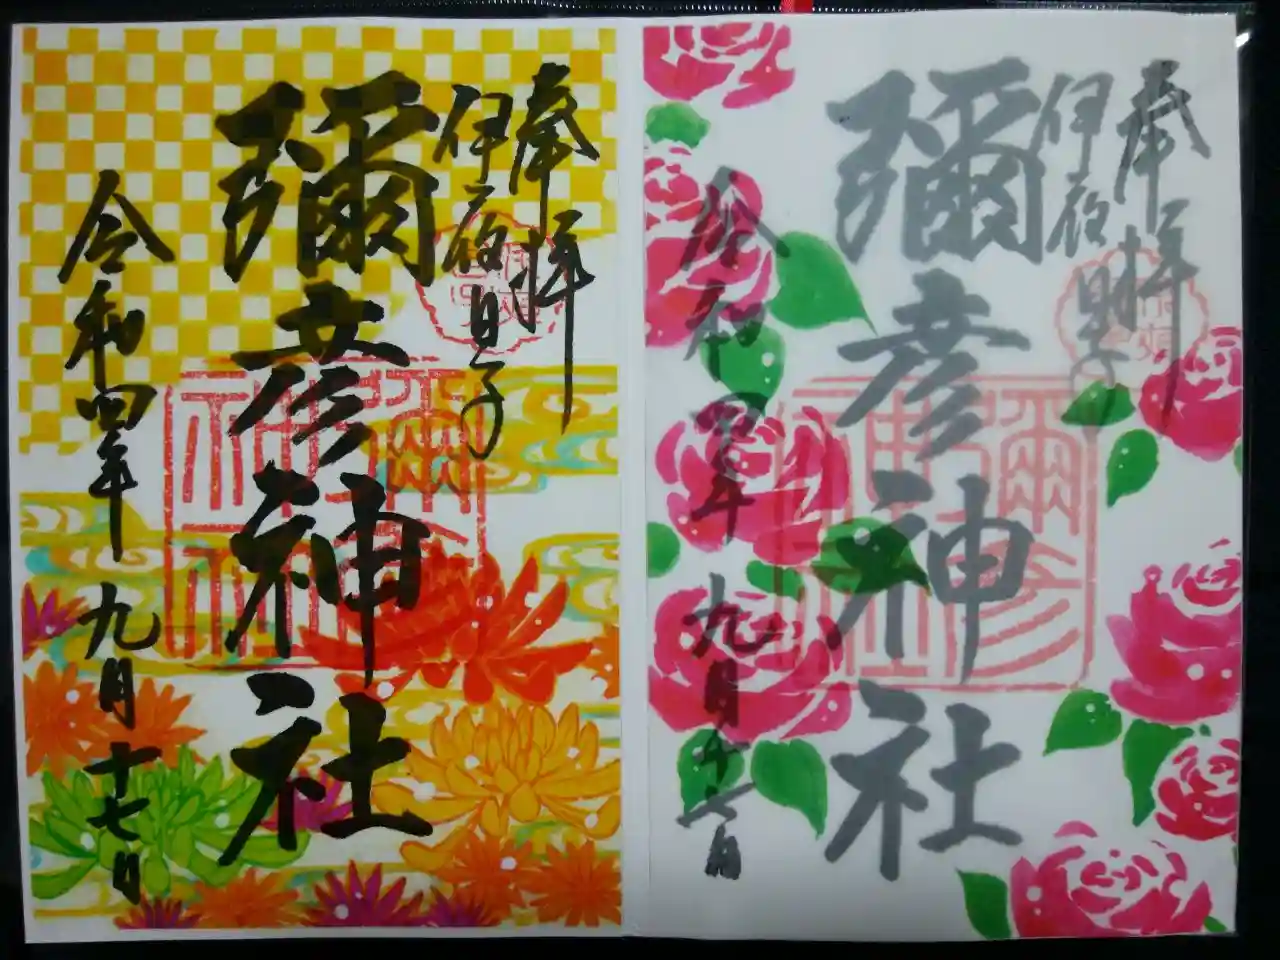 奉拝
伊夜日子
彌彦神社
令和四年 九月十七日
彌彦
神社
奉拝
伊夜日子
彌彦神社
令和四年 九月十七日
彌彦
神社